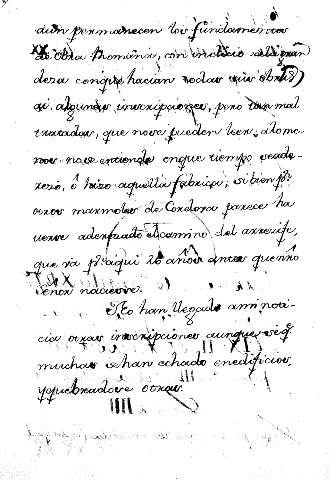 aun permanecen los fundamentos
de obra Romana, con indicio de la gran
deza con que hacian todas sus obras
ai algunas inscripciones, pero tan mal
tratadas, que no se pueden leer, alome
nos no se entiende en que tiempo se ade
rezó, ô hizo aquella fabrica; si bien pr.
otros marmoles de Cordova parece ha
verse aderezado el camino del arrezife,
que va pr. aqui 20 años antes que nrô
Señor naciese.
No han llegado a mi noti
cia otras inscripciones aunque se q.e
muchas se han echado en edificios,
y quebradose otras.